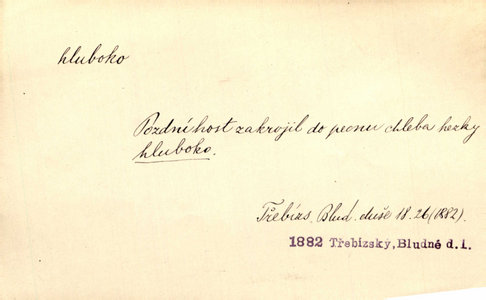 hluboko
Pozdní host zakrojil do pecnu chleba hezky
hluboko.
Třebízs. Blud. duše 18. 26 (1882).
1882 Třebízský, Bludné d. I.